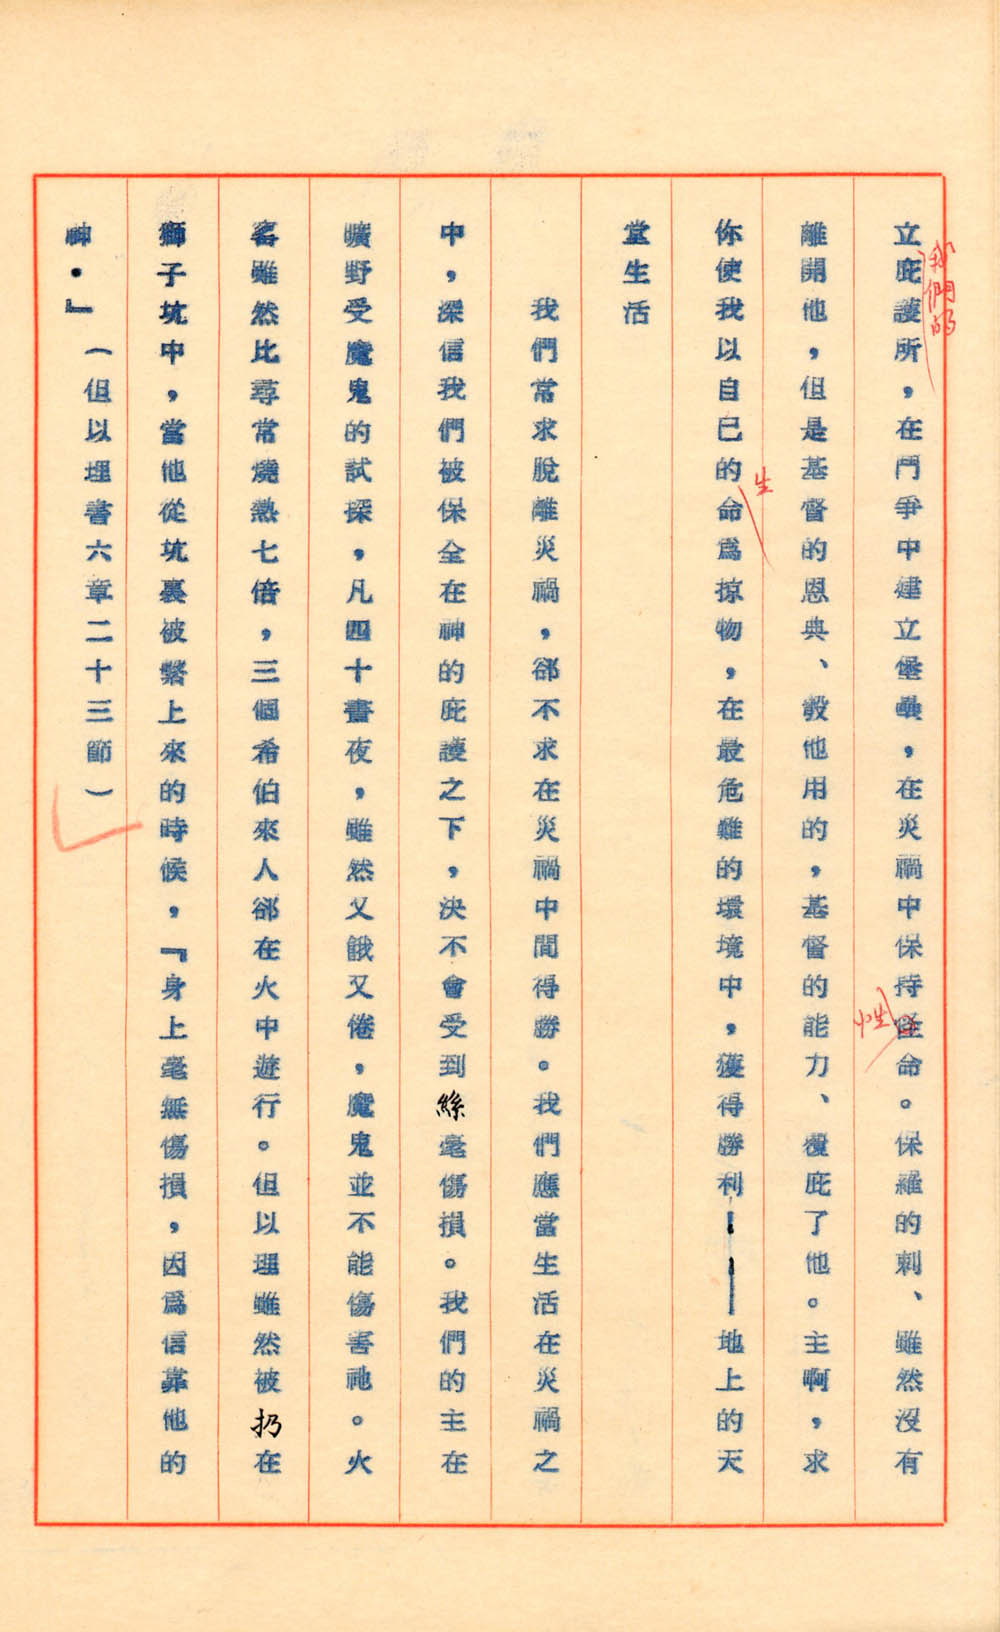 立庇護所，在鬥爭中建立堡壘，在災禍中保持怪命。保羅的刺、雖然沒有
我們的
性
離開他，但是基督的恩典、彀他用的，基督的能力、覆庇了他。主啊，求
你使我以自已的命爲掠物，在最危難的環境中，獲得勝利——地上的天
生
堂生活
我們常求脫離災禍，郤不求在災禍中間得勝。我們應當生活在災禍之
中，深信我們被保全在神的庇護之下，決不會受到絲毫傷損。我們的主在
曠野受魔鬼的試探，凡四十晝夜，雖然又餓又倦，魔鬼並不能傷害祂。火
窰雖然比尋常燒熱七倍，三個希伯來人郤在火中遊行。但以理雖然被扔在
獅子坑中，當他從坑裏被繫上來的時候，『身上毫無傷損，因爲信靠他的
神．』（但以理書六章二十三節）